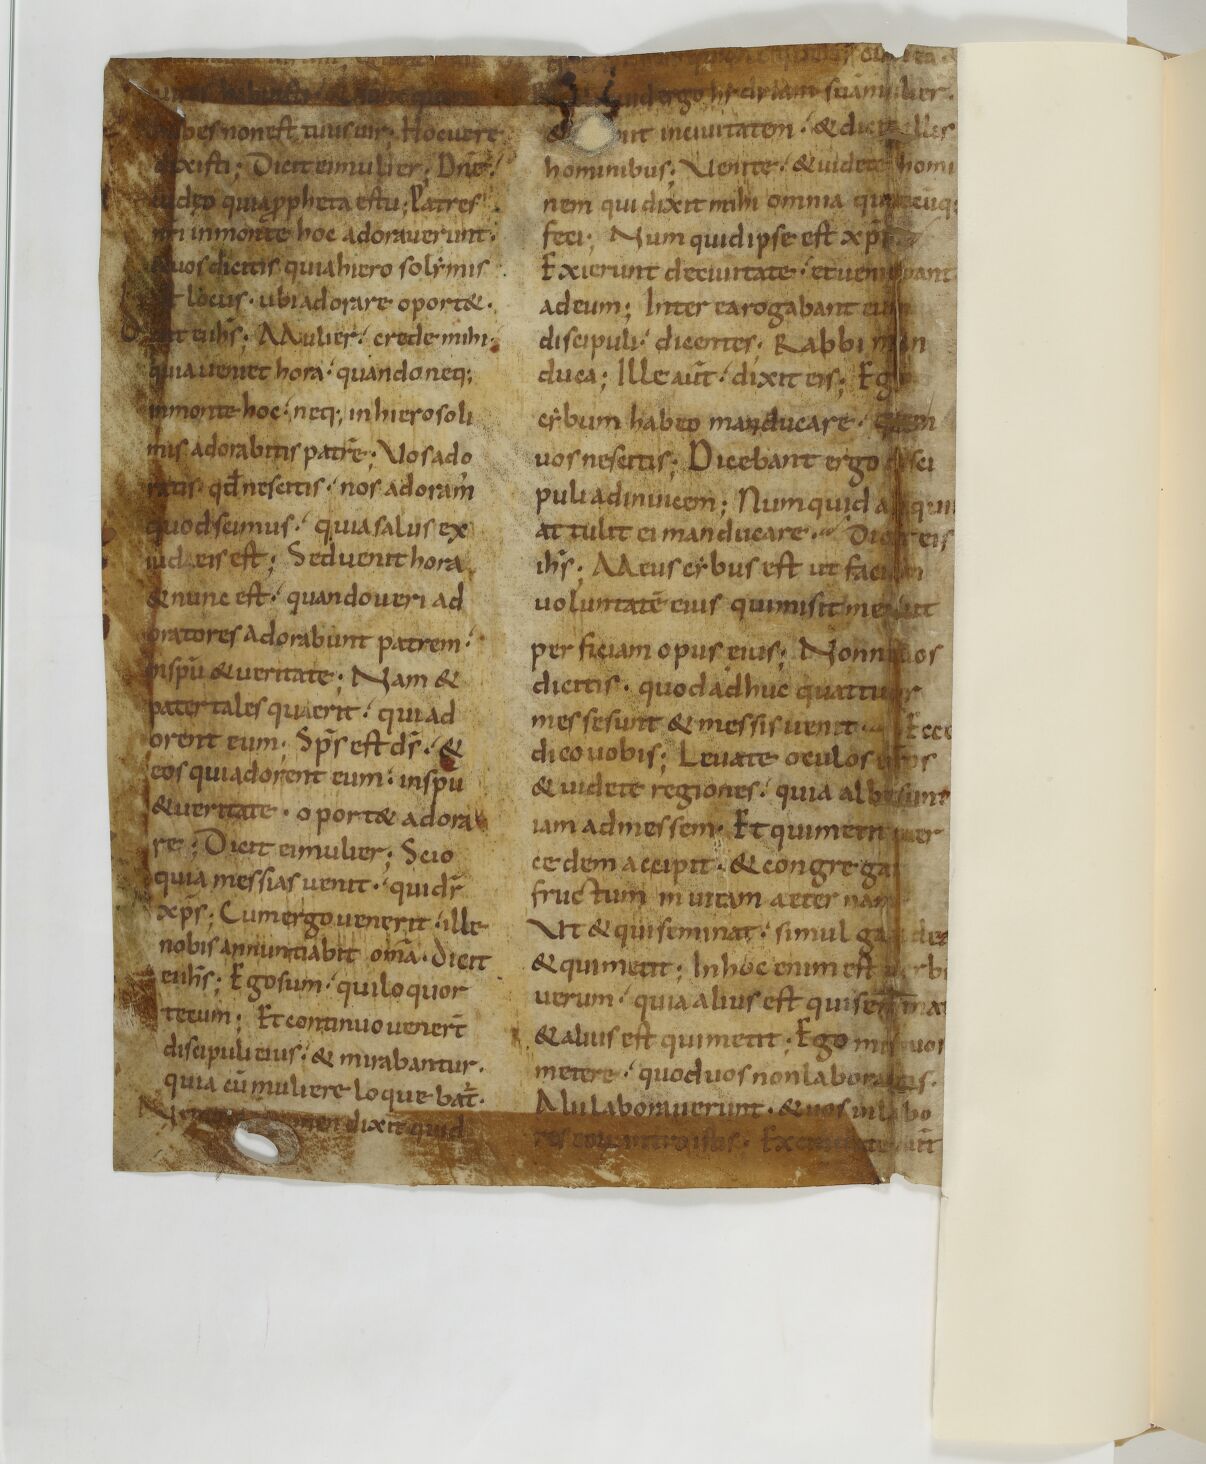 uiros habuisti · & nunc quem
habes non est tuus uir; Hoc uere
dixisti; Dicit ei mulier; Dnē·
uideo quia ppheta es tu; Patres
nri in monte hoc adorauerunt·
& uos dicitis quia hierosolymis
est locus · ubi adorare oport&·
Dicit ei ihs̄; Mulier · crede mihi·
quia ueniet hora · quando neq;
in monte hoc · neq; in hierosoli
mis adorabitis patrē; Vos ado
ratis · qđ nescitis · nos adoram
quod scimus · quia salus ex
iudaeis est; Sed uenit hora
& nunc est · quando ueri ad
oratores adorabunt patrem·
in spū & ueritate; Nam &
pater tales quaerit · qui ad
orent eum; Sps̄ est ds̄ · &
eos qui adorent eum · in spū
& ueritate · oport& adora
re; Dicit ei mulier; Scio
quia messias uenit · qui dr̄
xps̄; Cum ergo uenerit · ille
nobis annuntiabit omā · Dicit
ei ihs̄; Ego sum · qui loquor
tecum; Et continuo uenert̄
discipuli eius · & mirabantur·
quia cū muliere loquebat̄·
Nemo tamen dixit quid
ergo hydriam suam mulier·
& abiit in ciuitatem · & dicit illis
hominibus; Venite · & uidete homi
nem qui dixit mihi omnia quaecūq;
feci; Numquid ipse est xps̄
Exierunt de ciuitate · et ueniebant
ad eum; Interea rogabant eum
discipuli · dicentes; Rabbi man
duca; Ille aūt · dixit eis; Ego
cybum habeo manducare · quem
uos nescitis; Dicebant ergo disci
puli adinuicem; Numquid aliquis
attulit ei manducare · Dicit eis
ihs̄; Meus cybus est ut faciam
uoluntatē eius qui misit me · ut
perficiam opus eius; Nonne uos
dicitis · quod adhuc quattuor
messes sunt & messis uenit · Ecce
dico uobis; Leuate oculos uros
& uidete regiones · quia albe sunt
iam ad messem · Et qui metit mer
cedem accipit · & congregat
fructum in uitam aeternam
Vt & qui seminat · simul gaudeat
& qui metit; In hoc enim est uerbū
uerum · quia alius est qui seminat
& alius est qui metit; Ego misi uos
metere · quod uos non laborastis·
Alii laborauerunt · & uos in labo
res eoru introistis · Ex ciuitate aūt